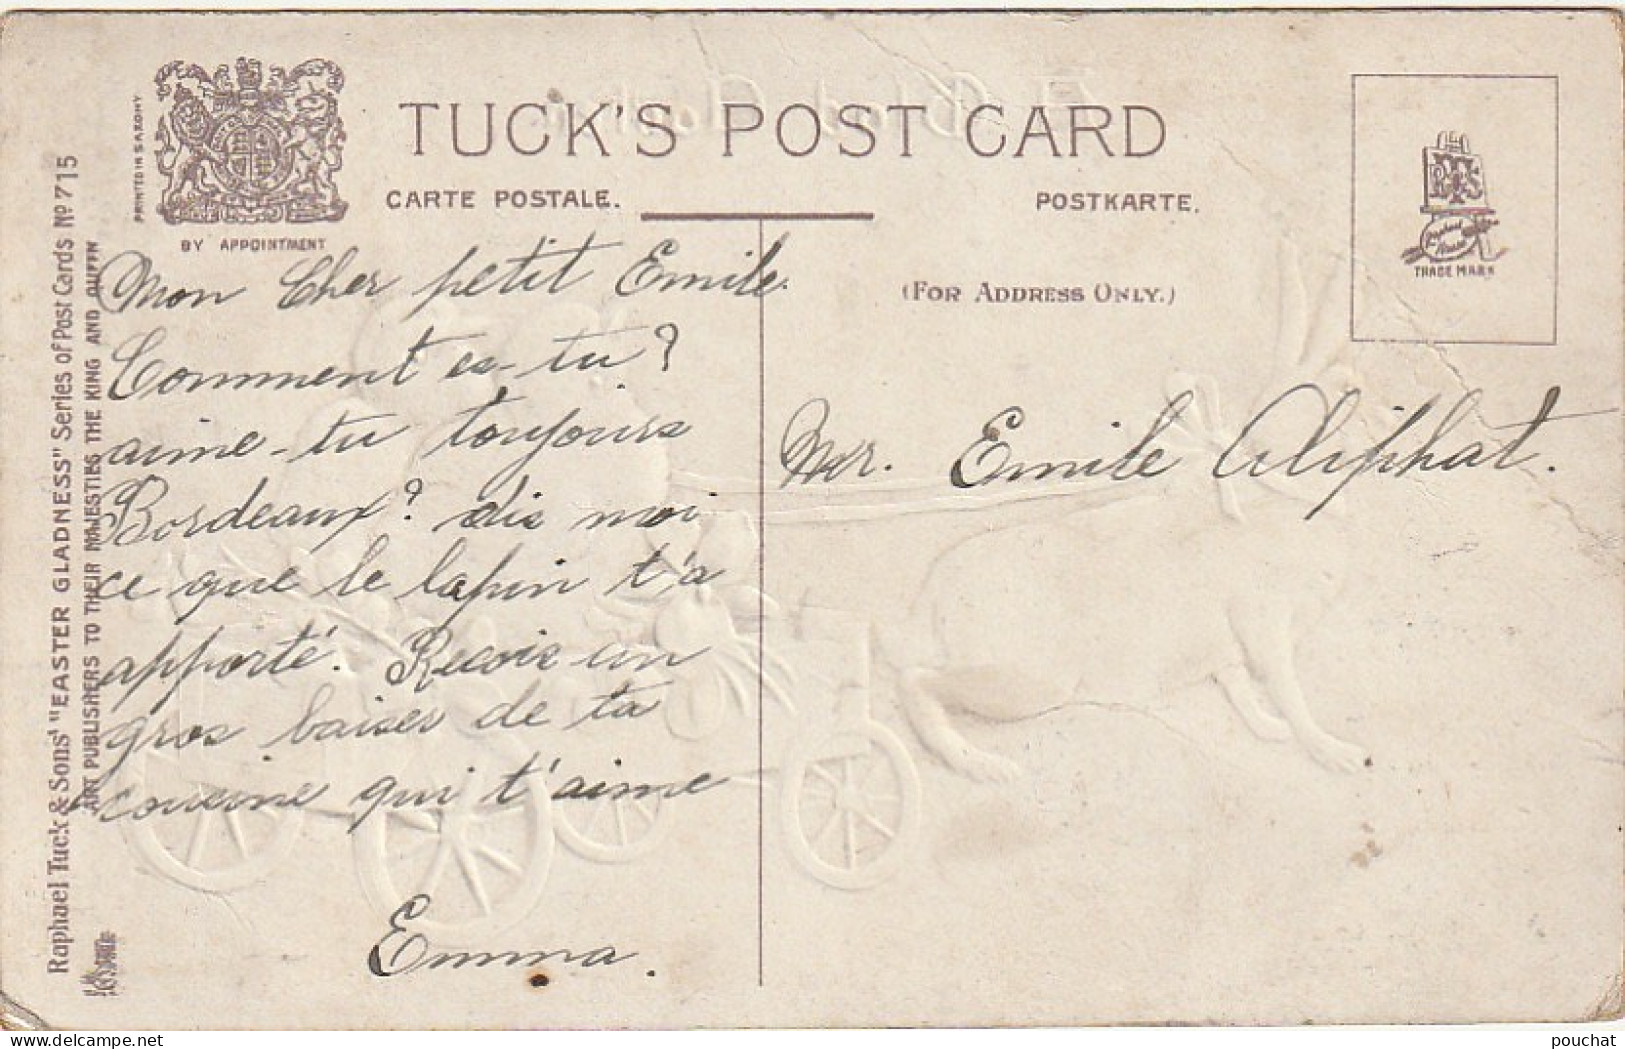 TUCK'S POST CARD
CARTE POSTALE.
POSTKARTE.
PRINTED IN SAXONY
BY APPOINTMENT
(FOR ADDRESS ONLY.)
RTS
TRADE MARK
Raphael Tuck & Sons' "EASTER GLADNESS" Series of Post Cards No 715
ART PUBLISHERS TO THEIR MAJESTIES THE KING AND QUEEN
Mon Cher petit Emile.
Comment es-tu?
aime-tu toujours
Bordeaux? dis moi
ce que le lapin t'a
apporté. Recois un
gros baises de ta
cousine qui t'aime
Emma.
Mr. Emile Aliphat.
delcampe.net
pouchat